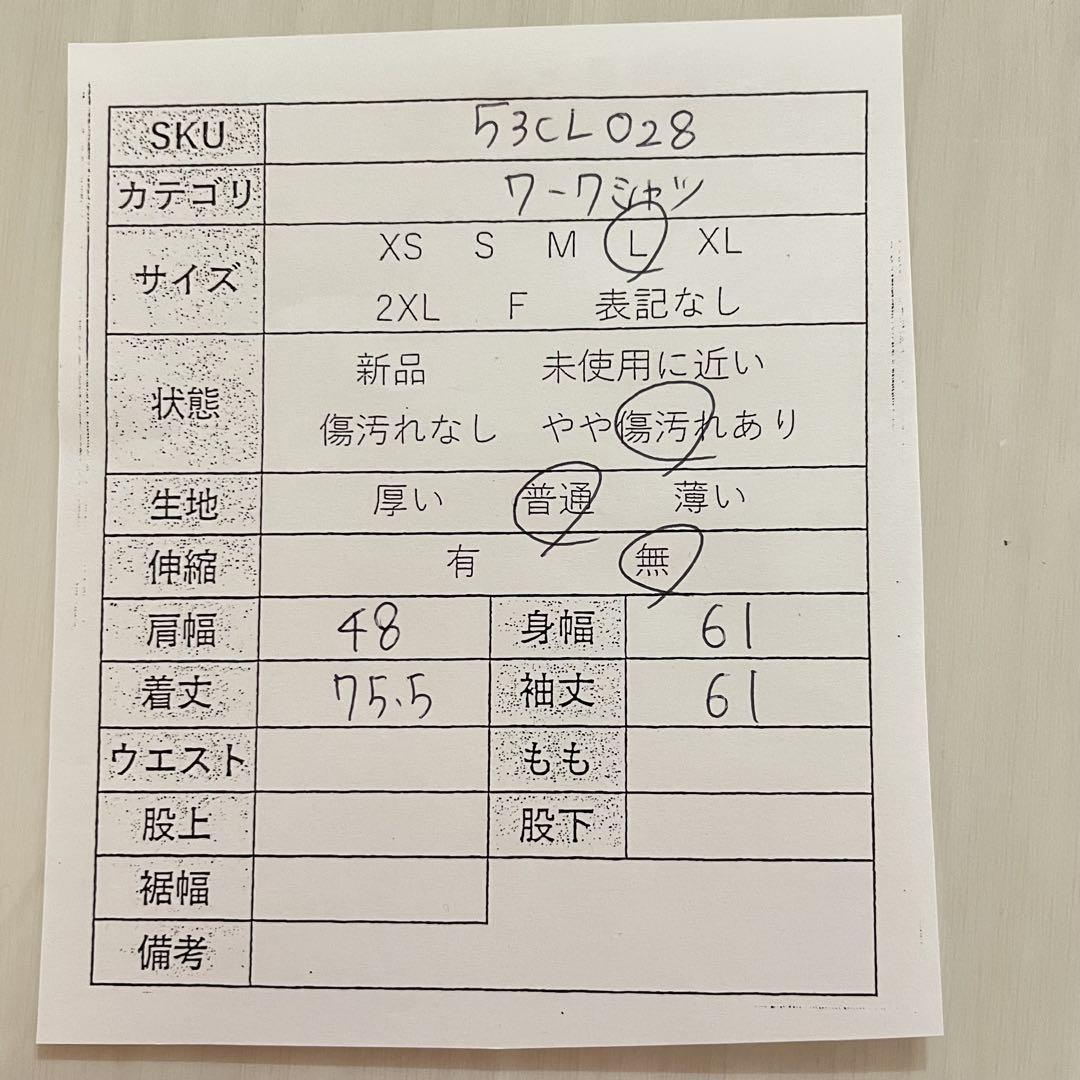 SKU 53CL028
カテゴリ ワークシャツ
サイズ XS S M L XL
2XL F 表記なし
状態 新品 未使用に近い
傷汚れなし やや傷汚れあり
生地 厚い 普通 薄い
伸縮 有 無
肩幅 48 身幅 61
着丈 75.5 袖丈 61
ウエスト もも
股上 股下
裾幅
備考